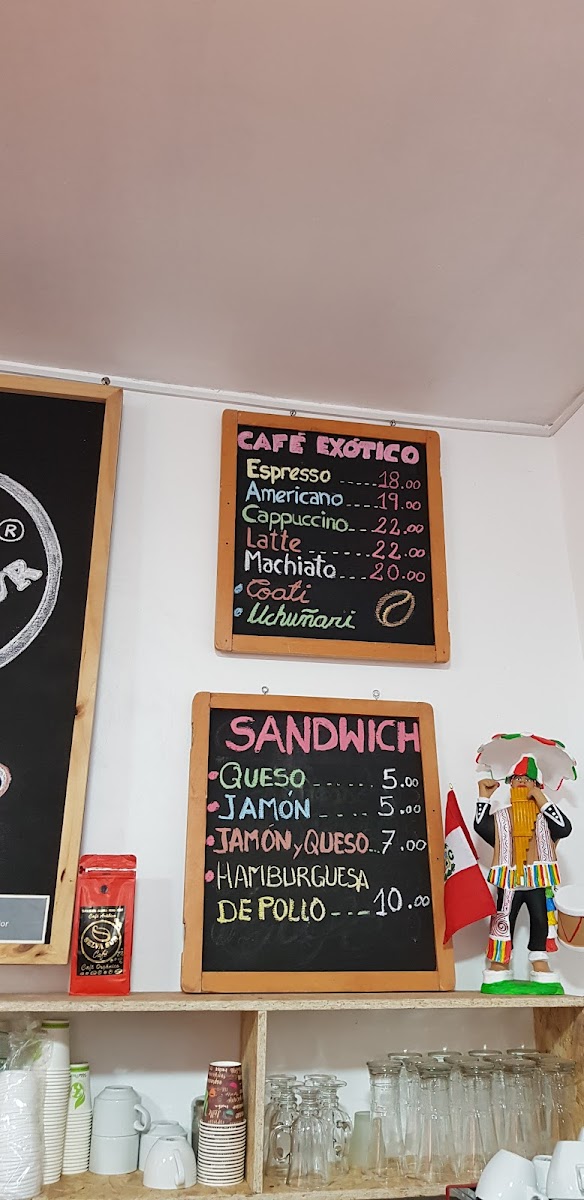 ®
UR
CAFÉ EXÓTICO
Espresso ..... 18.00
Americano .... 19.00
Cappuccino ... 22.00
Latte ------ 22.00
Machiato ... 20.00
Coati
Uchuñari
SANDWICH
QUESO ...... 5.00
JAMÓN ..... 5.00
JAMÓN y QUESO .. 7.00
HAMBURGUESA
DE POLLO ---- 10.00
Café
Café Orgánico